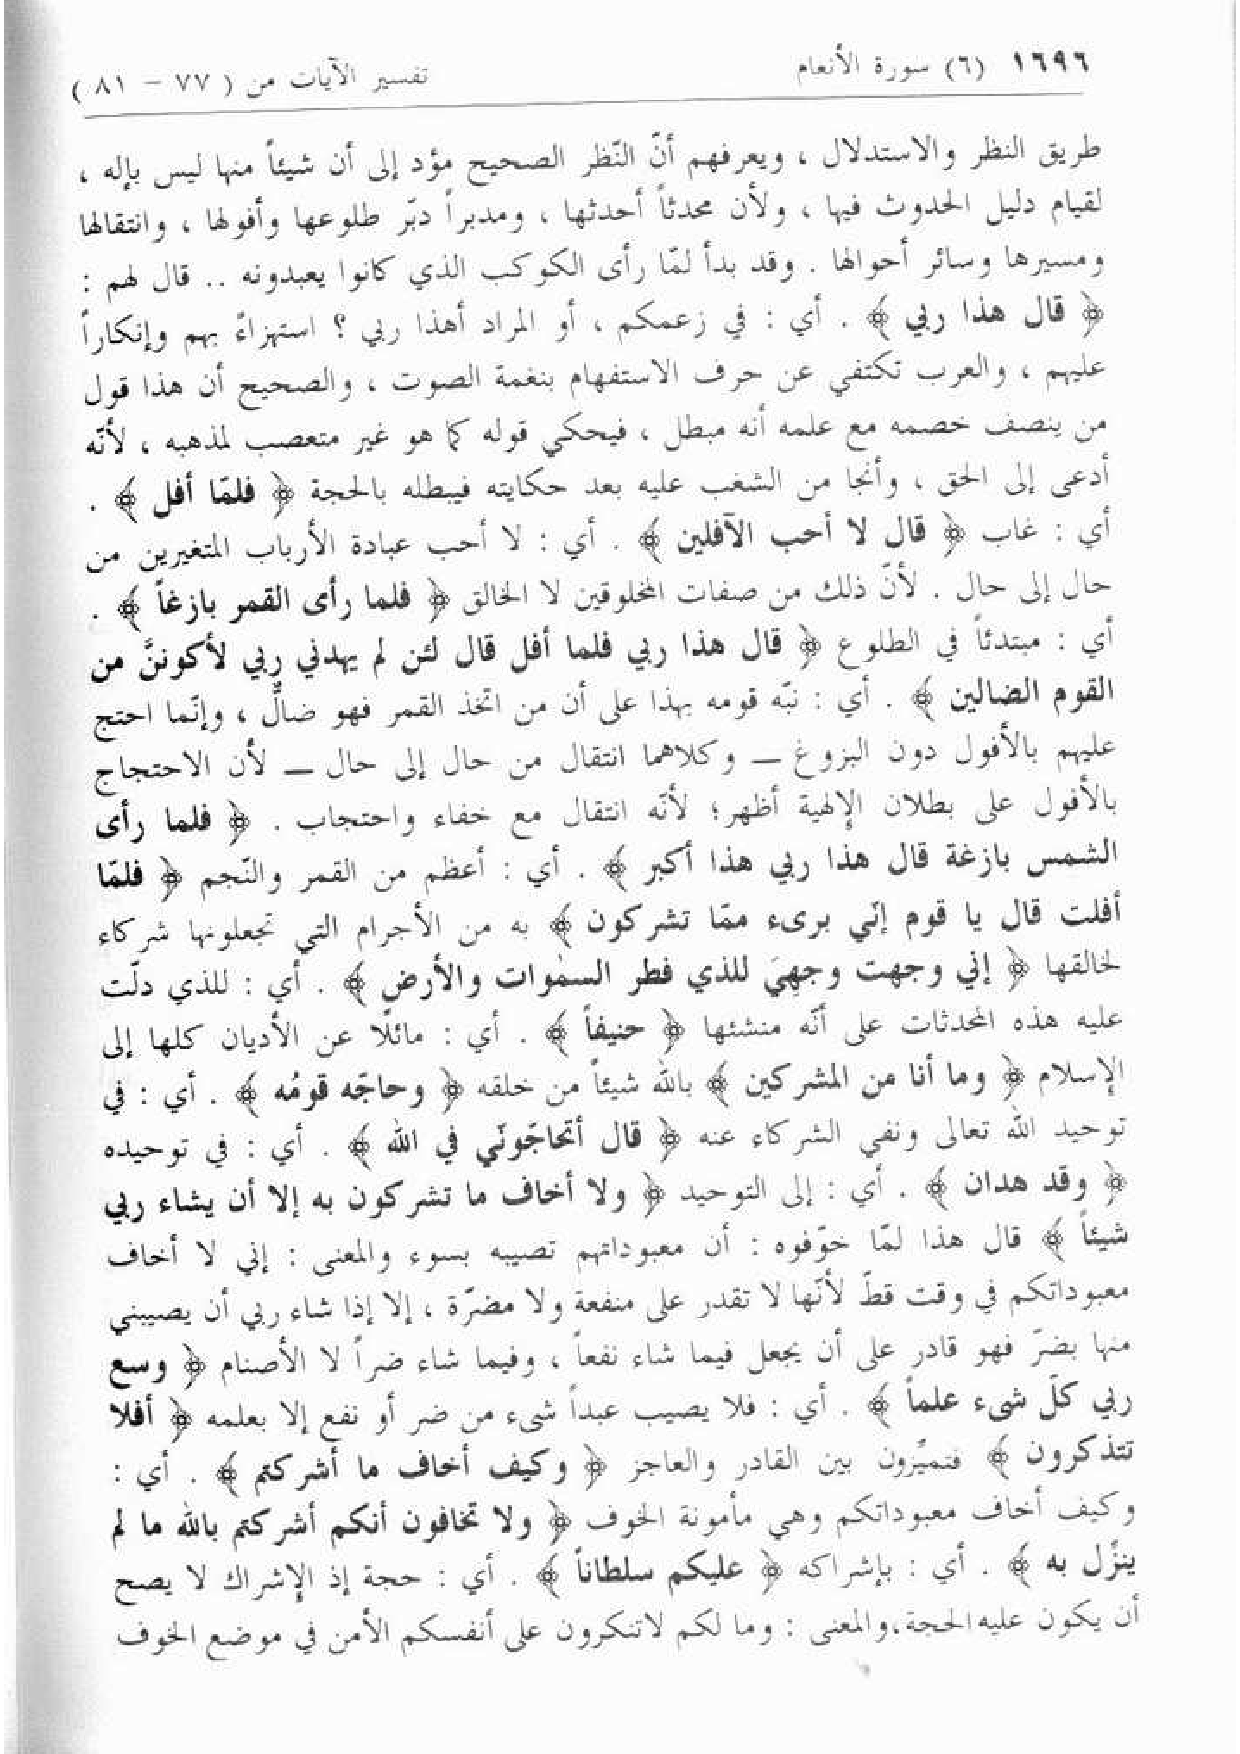 ١٦٩٦ (٦) سورة الأنعام تفسير الآيات من ( ٧٧ – ٨١ )
طريق النظر والاستدلال ، ويعرفهم أنّ النّظر الصحيح مؤد إلى أن شيئاً منها ليس بإله ،
لقيام دليل الحدوث فيها ، ولأن محدثاً أحدثها ، ومدبراً دبّر طلوعها وأفولها ، وانتقالها
ومسيرها وسائر أحوالها . وقد بدأ لمّا رأى الكوكب الذي كانوا يعبدونه .. قال لهم :
﴿ قال هذا ربي ﴾ . أي : في زعمكم ، أو المراد أهذا ربي ؟ استهزاءً بهم وإنكاراً
عليهم ، والعرب تكتفي عن حرف الاستفهام بنغمة الصوت ، والصحيح أن هذا قول
من ينصف خصمه مع علمه أنه مبطل ، فيحكي قوله كما هو غير متعصب لمذهبه ، لأنّه
أدعى إلى الحق ، وأنجا من الشغب عليه بعد حكايته فيبطله بالحجة ﴿ فلمّا أفل ﴾ .
أي : غاب ﴿ قال لا أحب الآفلين ﴾ . أي : لا أحب عبادة الأرباب المتغيرين من
حال إلى حال . لأنّ ذلك من صفات المخلوقين لا الخالق ﴿ فلما رأى القمر بازغاً ﴾ .
أي : مبتدئاً في الطلوع ﴿ قال هذا ربي فلما أفل قال لئن لم يهدني ربي لأكوننَّ من
القوم الضالين ﴾ . أي : نبّه قومه بهذا على أن من اتخذ القمر فهو ضالٌّ ، وإنّما احتج
عليهم بالأفول دون البزوغ ــ وكلاهما انتقال من حال إلى حال ــ لأن الاحتجاج
بالأفول على بطلان الإلهية أظهر؛ لأنّه انتقال مع خفاء واحتجاب . ﴿ فلما رأى
الشمس بازغة قال هذا ربي هذا أكبر ﴾ . أي : أعظم من القمر والنّجم ﴿ فلمّا
أفلت قال يا قوم إنّي برىء ممّا تشركون ﴾ به من الأجرام التي تجعلونها شركاء
لخالقها ﴿ إني وجهت وجهيَ للذي فطر السمٰوات والأرض ﴾ . أي : للذي دلّت
عليه هذه المحدثات على أنّه منشئها ﴿ حنيفاً ﴾ . أي : مائلًا عن الأديان كلها إلى
الإسلام ﴿ وما أنا من المشركين ﴾ بالله شيئاً من خلقه ﴿ وحاجّه قومُه ﴾ . أي : في
توحيد الله تعالى ونفي الشركاء عنه ﴿ قال أتحاجّونّي في الله ﴾ . أي : في توحيده
﴿ وقد هدان ﴾ . أي : إلى التوحيد ﴿ ولا أخاف ما تشركون به إلا أن يشاء ربي
شيئاً ﴾ قال هذا لمّا خوّفوه : أن معبوداتهم تصيبه بسوء والمعنى : إني لا أخاف
معبوداتكم في وقت قطّ لأنّها لا تقدر على منفعة ولا مضرّة ، إلا إذا شاء ربي أن يصيبني
منها بضرّ فهو قادر على أن يجعل فيما شاء نفعاً ، وفيما شاء ضراً لا الأصنام ﴿ وسع
ربي كلّ شىء علماً ﴾ . أي : فلا يصيب عبداً شىء من ضر أو نفع إلا بعلمه ﴿ أفلا
تتذكرون ﴾ فتميِّزون بين القادر والعاجز ﴿ وكيف أخاف ما أشركتم ﴾ . أي :
وكيف أخاف معبوداتكم وهي مأمونة الخوف ﴿ ولا تخافون أنكم أشركتم بالله ما لم
ينزِّل به ﴾ . أي : بإشراكه ﴿ عليكم سلطاناً ﴾ . أي : حجة إذ الإشراك لا يصح
أن يكون عليه الحجة،والمعنى : وما لكم لاتنكرون على أنفسكم الأمن في موضع الخوف